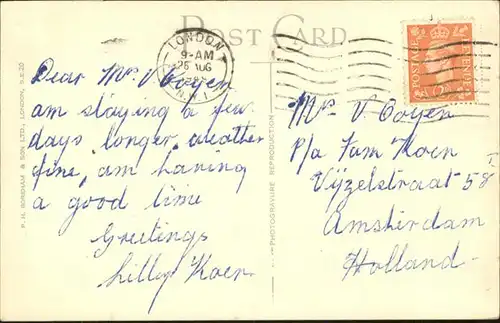 POST CARD
LONDON
9-AM
26 AUG
N.W.1
POSTAGE
Dear Mrs V Ooyen
am staying a few
days longer, weather
fine, am having
a good time
Greetings
Lilly Koen
Mrs V Ooyen
P/a Fam Koen
Vijzelstraat 58
Amsterdam
Holland
F. H. BORKHAM & SON LTD., LONDON, S.E.20
PHOTOGRAVURE REPRODUCTION